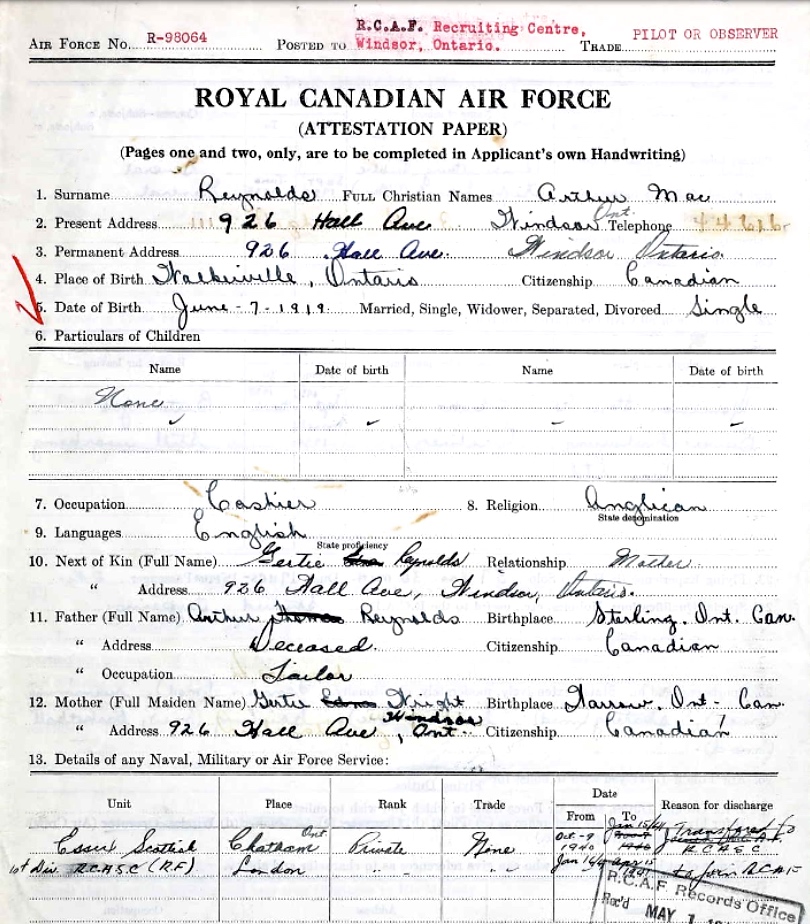 R.C.A.F. Recruiting Centre,
AIR FORCE No. R-98064 POSTED TO Windsor, Ontario. TRADE PILOT OR OBSERVER
ROYAL CANADIAN AIR FORCE
(ATTESTATION PAPER)
(Pages one and two, only, are to be completed in Applicant's own Handwriting)
1. Surname Reynolds FULL Christian Names Arthur Mac
2. Present Address 926 Hall Ave Windsor Ont. Telephone 44616
3. Permanent Address 926 Hall Ave. Windsor Ontario.
4. Place of Birth Walkerville, Ontario Citizenship Canadian
5. Date of Birth June-7-1919 Married, Single, Widower, Separated, Divorced Single
6. Particulars of Children
Name Date of birth Name Date of birth
None
7. Occupation Cashier 8. Religion Anglican
State denomination
9. Languages English
State proficiency
10. Next of Kin (Full Name) Gertie Reynolds Relationship Mother
" Address 926 Hall Ave, Windsor, Ontario.
11. Father (Full Name) Arthur Thomas Reynolds Birthplace Sterling. Ont. Can.
" Address Deceased. Citizenship Canadian
" Occupation Tailor
12. Mother (Full Maiden Name) Gertie Wright Birthplace Harrow, Ont- Can.
" Address 926 Hall Ave Windsor, Ont. Citizenship Canadian
13. Details of any Naval, Military or Air Force Service:
Date
Unit Place Rank Trade From To Reason for discharge
Essex Scottish Chatham Ont Private None Oct-9 1940 Jan 15/41 Transfered to R.C.A.S.C
1st Div R.C.A.S.C (R.F) London " " " " Jan 16/41 Apr 15 1941 to join R.C.A.F
R.C.A.F. Records Office
Rec'd MAY 1